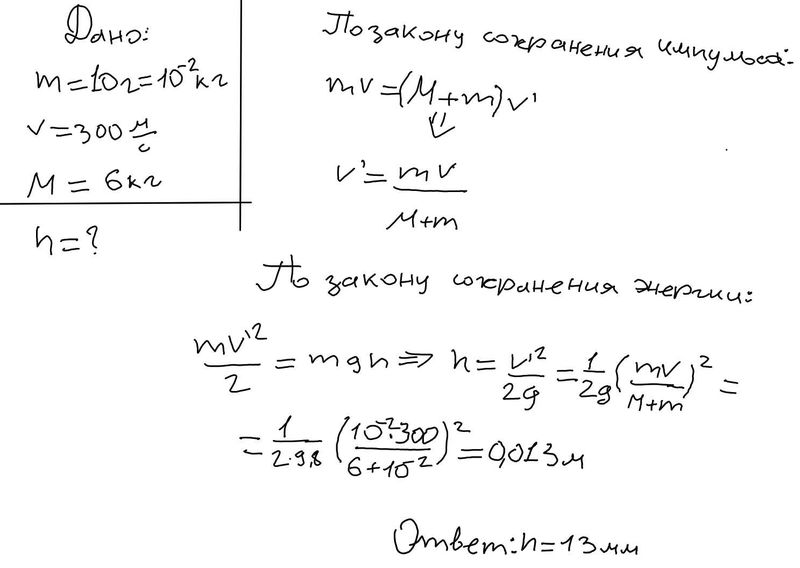 Дано:
m=10г=10⁻²кг
v=300 м/с
M = 6кг
h=?
По закону сохранения импульса:
mv=(M+m)v'
⇓
v'= mv/(M+m)
По закону сохранения энергии:
mv'²/2 = mgh ⇒ h= v'²/2g = 1/2g (mv/(M+m))² =
= 1/(2·9,8) (10⁻²·300/(6+10⁻²))² = 0,013м
Ответ: h=13мм